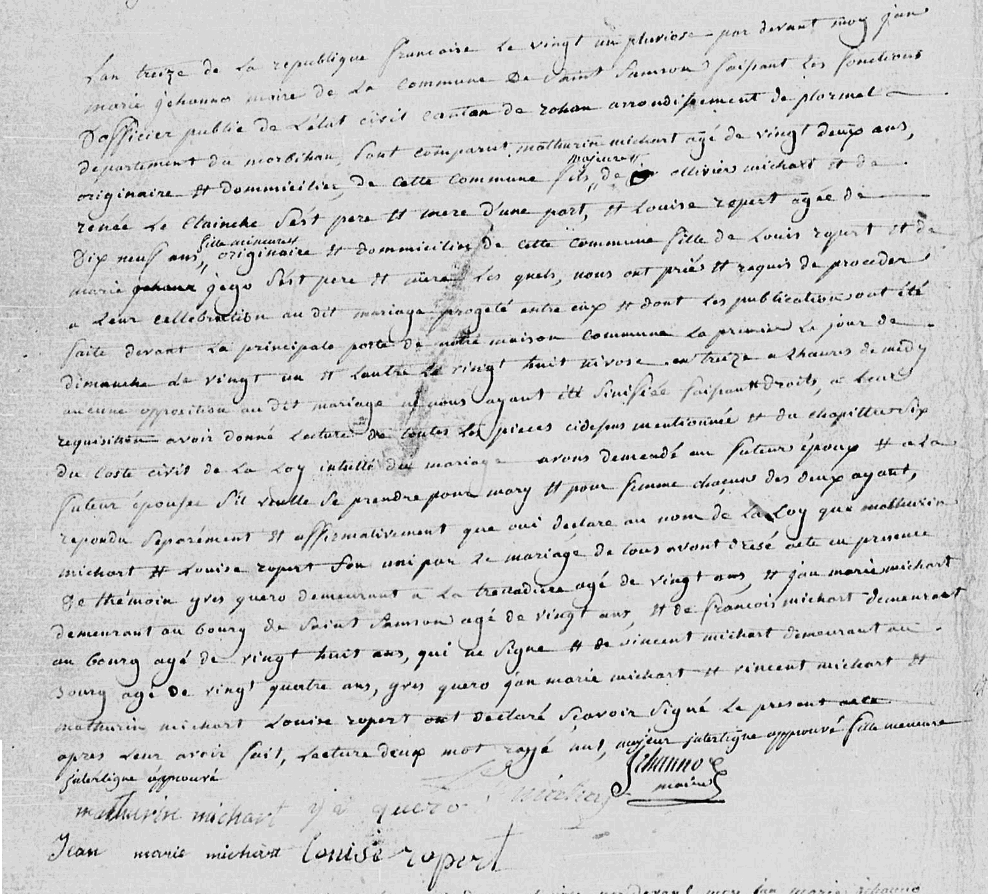 Lan treize de La republique francaise Le vingt un pluviose par devant moy jan
marie jehanno maire de La Commune De Saint Samson faisant Les fonctions
Dofficier publie de L'état civil canton de rohan arrondissement de plormel
departement du morbihan, sont comparut mathurin michart agé de vingt deux ans,
majeure
originaire et dommicilier de cette commune fils de ollivier michart et de
renée Le Clainche Sést pere et mere d'une part, et Louise ropert agée de
fille mineures
Dix neuf ans, originaire et dommicilier de cette commune fille de Louis ropert et de
marie jehann jego Sést pere et mere Les quels, nous ont priés et requis de proceder
a Leur cellebration au dit mariage progeté entre eux et dont Les publications ont été
faite devant La principale porte de notre maison commune La premier Le jour de
dimanche Le vingt un et Lautre Le vingt huit nivose an treize a 2 heures de midy
aucune opposition au dit mariage ne nous ayant été Sinifiée faisant droits, a Leur
requisition avoir donné Lecture de toutes Les pieces cidesus mentionnée et du chapittre Six
du Coste civil de La Loy intullé du mariage avons demendé au futeur époux et a La
futeur épousee Sil veulle Se prendre pour mary et pour femme chacuns des deux ayant,
repondu Separément et affirmativement que oui declare au nom de La Loy que mathurin
michart et Louise ropert Son uni par Le mariage de tous avont dresé acte en presence
De thémoin yves quero demeurant a La agé de vingt ans, et jan marie michart
demeurant au bourg de Saint Samson agé de vingt ans, et de francois michart demeurant
au bourg agé de vingt huit ans, qui ne Signe et de vincent michart demeurant au
Bourg agé de vingt quatre ans, yves quero jan marie michart et vincent michart et
mathurin michart Louise ropert ont declaré Scavoir Signé Le present acte
apres Leur avoir fait, Lecture deux mot rayé nul, majeur jnterligne approuvé fille meneure
jnterligne approuvé
Jehanno
maire
mathurin michart quero
Jean marie michart Louise ropert